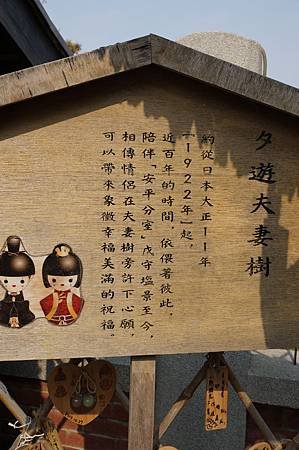 夕遊夫妻樹
約從日本大正11年
（1922年）起，
近百年的時間，依偎著彼此，
陪伴「安平分室」戍守塩景至今，
相傳情侶在夫妻樹旁許下心願，
可以帶來象徵幸福美滿的祝福。